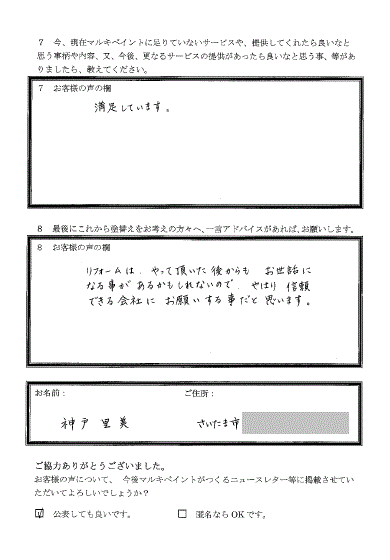 7 今、現在マルキペイントに足りていないサービスや、提供してくれたら良いなと
思う事柄や内容、又、今後、更なるサービスの提供があったら良いなと思う事、等があ
りましたら、教えてください。
7 お客様の声の欄
満足しています。
8 最後にこれから塗替えをお考えの方々へ、一言アドバイスがあれば、お願いします。
8 お客様の声の欄
リフォームは、やって頂いた後からも お世話に
なる事があるかもしれないので、やはり信頼
できる会社に お願いする事だと思います。
お名前： ご住所：
神戸 里美 さいたま市
ご協力ありがとうございました。
お客様の声について、今後マルキペイントがつくるニュースレター等に掲載させてい
ただいてよろしいでしょうか？
☑ 公表しても良いです。 □ 匿名なら OK です。